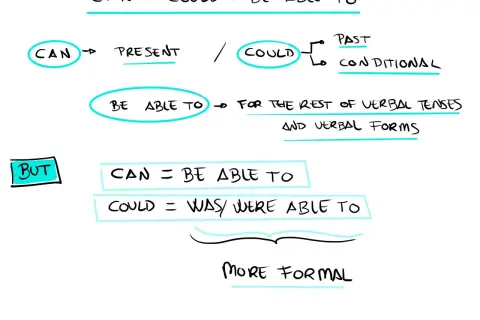 CAN - COULD - BE ABLE TO
CAN → PRESENT / COULD → PAST
→ CONDITIONAL
BE ABLE TO → FOR THE REST OF VERBAL TENSES
AND VERBAL FORMS
BUT
CAN = BE ABLE TO
COULD = WAS/WERE ABLE TO
MORE FORMAL